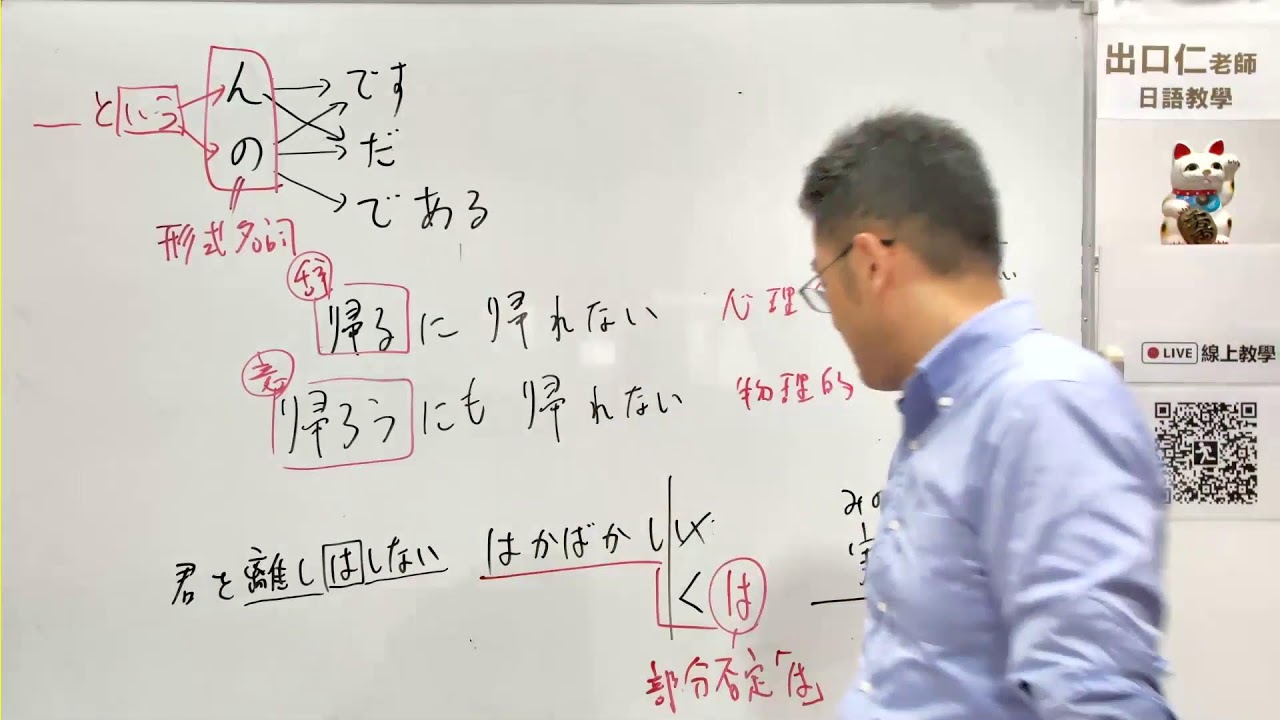 んです
＿という
のだ
である
形式名詞
辞
帰るに帰れない 心理
意
帰ろうにも帰れない 物理的
君を離しはしない
はかばかしい
くは
部分否定「は」
みの
出口仁老師
日語教學
LIVE 線上教學